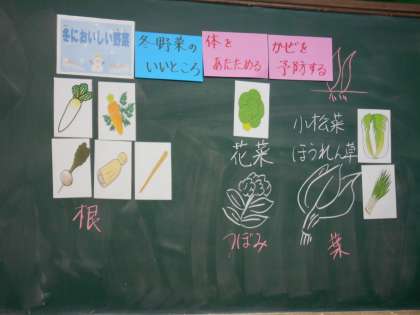 冬においしい野菜
冬野菜の
いいところ
体を
あたためる
かぜを
予防する
小松菜
花菜
ほうれん草
根
つぼみ
葉